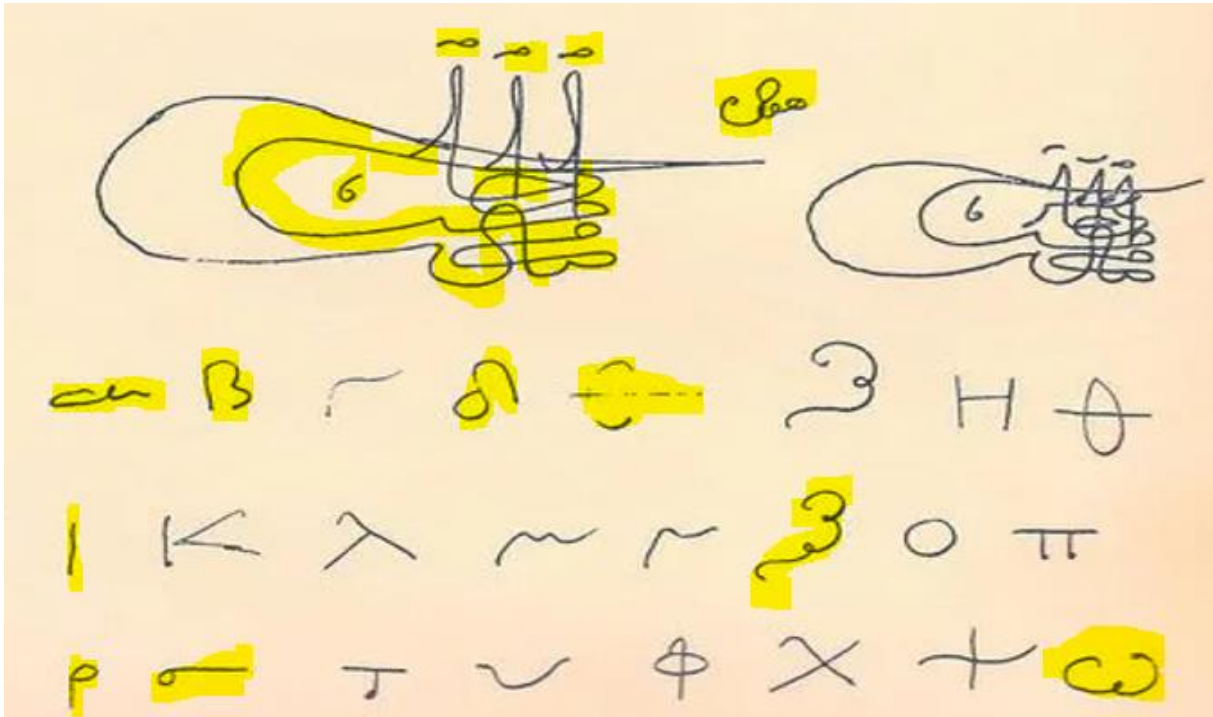 6 6
α β γ δ ε ζ Η θ
ι κ λ μ ν ξ ο π
ρ σ τ υ φ χ ψ ω